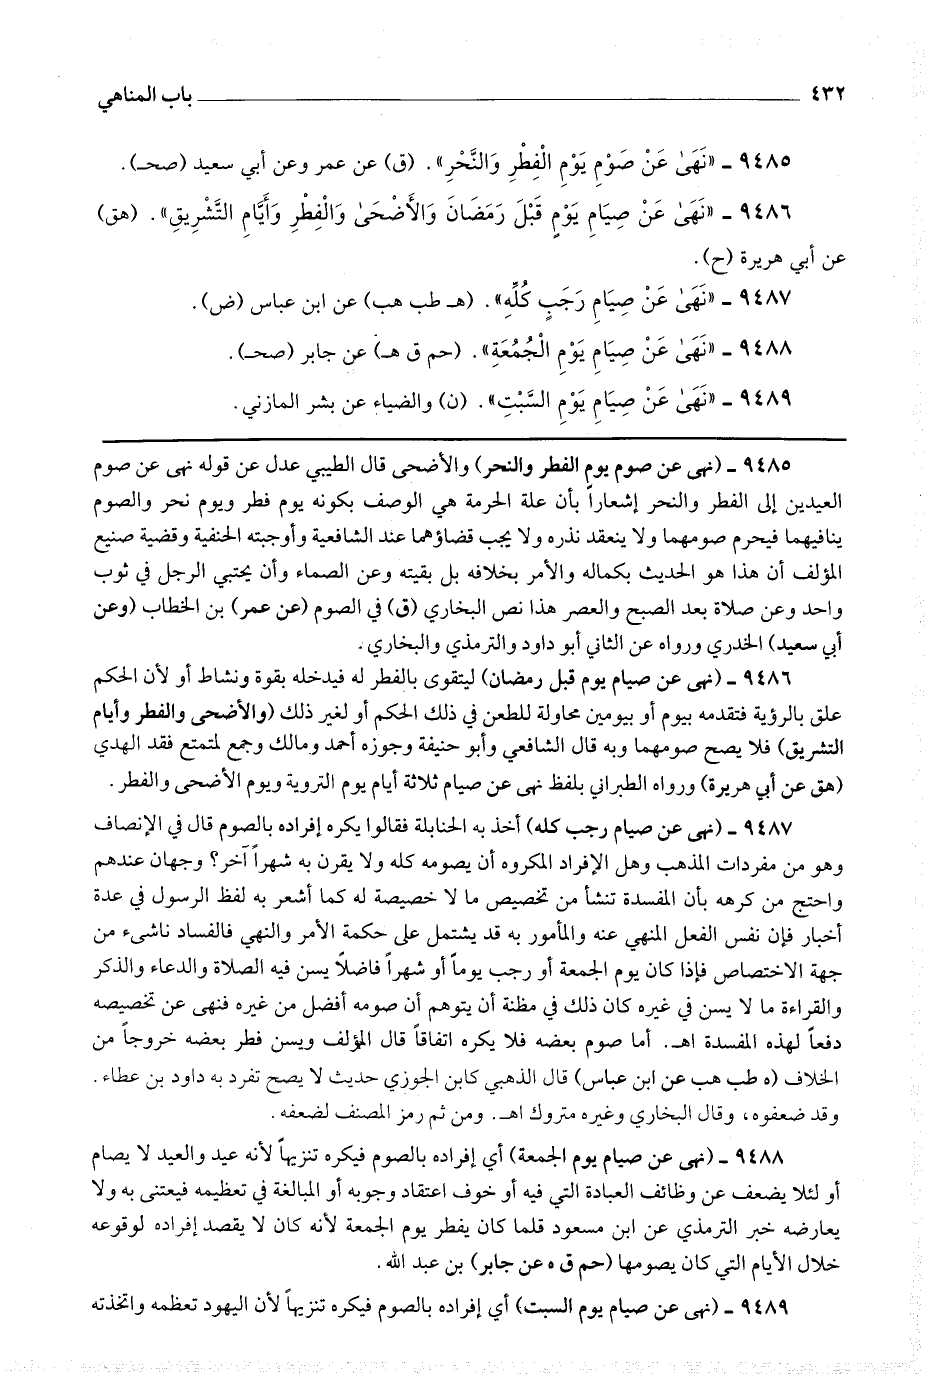 ٤٣٢ ــــــ باب المناهي
٩٤٨٥ ـ «نَهَىٰ عَنْ صَوْمِ يَوْمِ الْفِطْرِ وَالنَّحْرِ». (ق) عن عمر وعن أبي سعيد (صحـ).
٩٤٨٦ ـ «نَهَىٰ عَنْ صِيَامِ يَوْمٍ قَبْلَ رَمَضَانَ وَالْأَضْحَىٰ وَالْفِطْرِ وَأَيَّامِ التَّشْرِيقِ». (هق)
عن أبي هريرة (ح).
٩٤٨٧ ـ «نَهَىٰ عَنْ صِيَامِ رَجَبٍ كُلِّهِ». (هـ طب هب) عن ابن عباس (ض).
٩٤٨٨ ـ «نَهَىٰ عَنْ صِيَامِ يَوْمِ الْجُمُعَةِ». (حم ق هـ) عن جابر (صحـ).
٩٤٨٩ ـ «نَهَىٰ عَنْ صِيَامِ يَوْمِ السَّبْتِ». (ن) والضياء عن بشر المازني.
٩٤٨٥ ـ (نهى عن صوم يوم الفطر والنحر) والأضحى قال الطيبي عدل عن قوله نهى عن صوم
العيدين إلى الفطر والنحر إشعاراً بأن علة الحرمة هي الوصف بكونه يوم فطر ويوم نحر والصوم
ينافيهما فيحرم صومهما ولا ينعقد نذره ولا يجب قضاؤهما عند الشافعية وأوجبته الحنفية وقضية صنيع
المؤلف أن هذا هو الحديث بكماله والأمر بخلافه بل بقيته وعن الصماء وأن يحتبي الرجل في ثوب
واحد وعن صلاة بعد الصبح والعصر هذا نص البخاري (ق) في الصوم (عن عمر) بن الخطاب (وعن
أبي سعيد) الخدري ورواه عن الثاني أبو داود والترمذي والبخاري.
٩٤٨٦ ـ (نهى عن صيام يوم قبل رمضان) ليتقوى بالفطر له فيدخله بقوة ونشاط أو لأن الحكم
علق بالرؤية فتقدمه بيوم أو بيومين محاولة للطعن في ذلك الحكم أو لغير ذلك (والأضحى والفطر وأيام
التشريق) فلا يصح صومهما وبه قال الشافعي وأبو حنيفة وجوزه أحمد ومالك وجمع لمتمتع فقد الهدي
(هق عن أبي هريرة) ورواه الطبراني بلفظ نهى عن صيام ثلاثة أيام يوم التروية ويوم الأضحى والفطر.
٩٤٨٧ ـ (نهى عن صيام رجب كله) أخذ به الحنابلة فقالوا يكره إفراده بالصوم قال في الإنصاف
وهو من مفردات المذهب وهل الإفراد المكروه أن يصومه كله ولا يقرن به شهراً آخر؟ وجهان عندهم
واحتج من كرهه بأن المفسدة تنشأ من تخصيص ما لا خصيصة له كما أشعر به لفظ الرسول في عدة
أخبار فإن نفس الفعل المنهي عنه والمأمور به قد يشتمل على حكمة الأمر والنهي فالفساد ناشىء من
جهة الاختصاص فإذا كان يوم الجمعة أو رجب يوماً أو شهراً فاضلاً يسن فيه الصلاة والدعاء والذكر
والقراءة ما لا يسن في غيره كان ذلك في مظنة أن يتوهم أن صومه أفضل من غيره فنهى عن تخصيصه
دفعاً لهذه المفسدة اهـ. أما صوم بعضه فلا يكره اتفاقاً قال المؤلف ويسن فطر بعضه خروجاً من
الخلاف (ه طب هب عن ابن عباس) قال الذهبي كابن الجوزي حديث لا يصح تفرد به داود بن عطاء.
وقد ضعفوه، وقال البخاري وغيره متروك اهـ. ومن ثم رمز المصنف لضعفه.
٩٤٨٨ ـ (نهى عن صيام يوم الجمعة) أي إفراده بالصوم فيكره تنزيهاً لأنه عيد والعيد لا يصام
أو لئلا يضعف عن وظائف العبادة التي فيه أو خوف اعتقاد وجوبه أو المبالغة في تعظيمه فيعتنى به ولا
يعارضه خبر الترمذي عن ابن مسعود قلما كان يفطر يوم الجمعة لأنه كان لا يقصد إفراده لوقوعه
خلال الأيام التي كان يصومها (حم ق ه عن جابر) بن عبد الله.
٩٤٨٩ ـ (نهى عن صيام يوم السبت) أي إفراده بالصوم فيكره تنزيهاً لأن اليهود تعظمه واتخذته